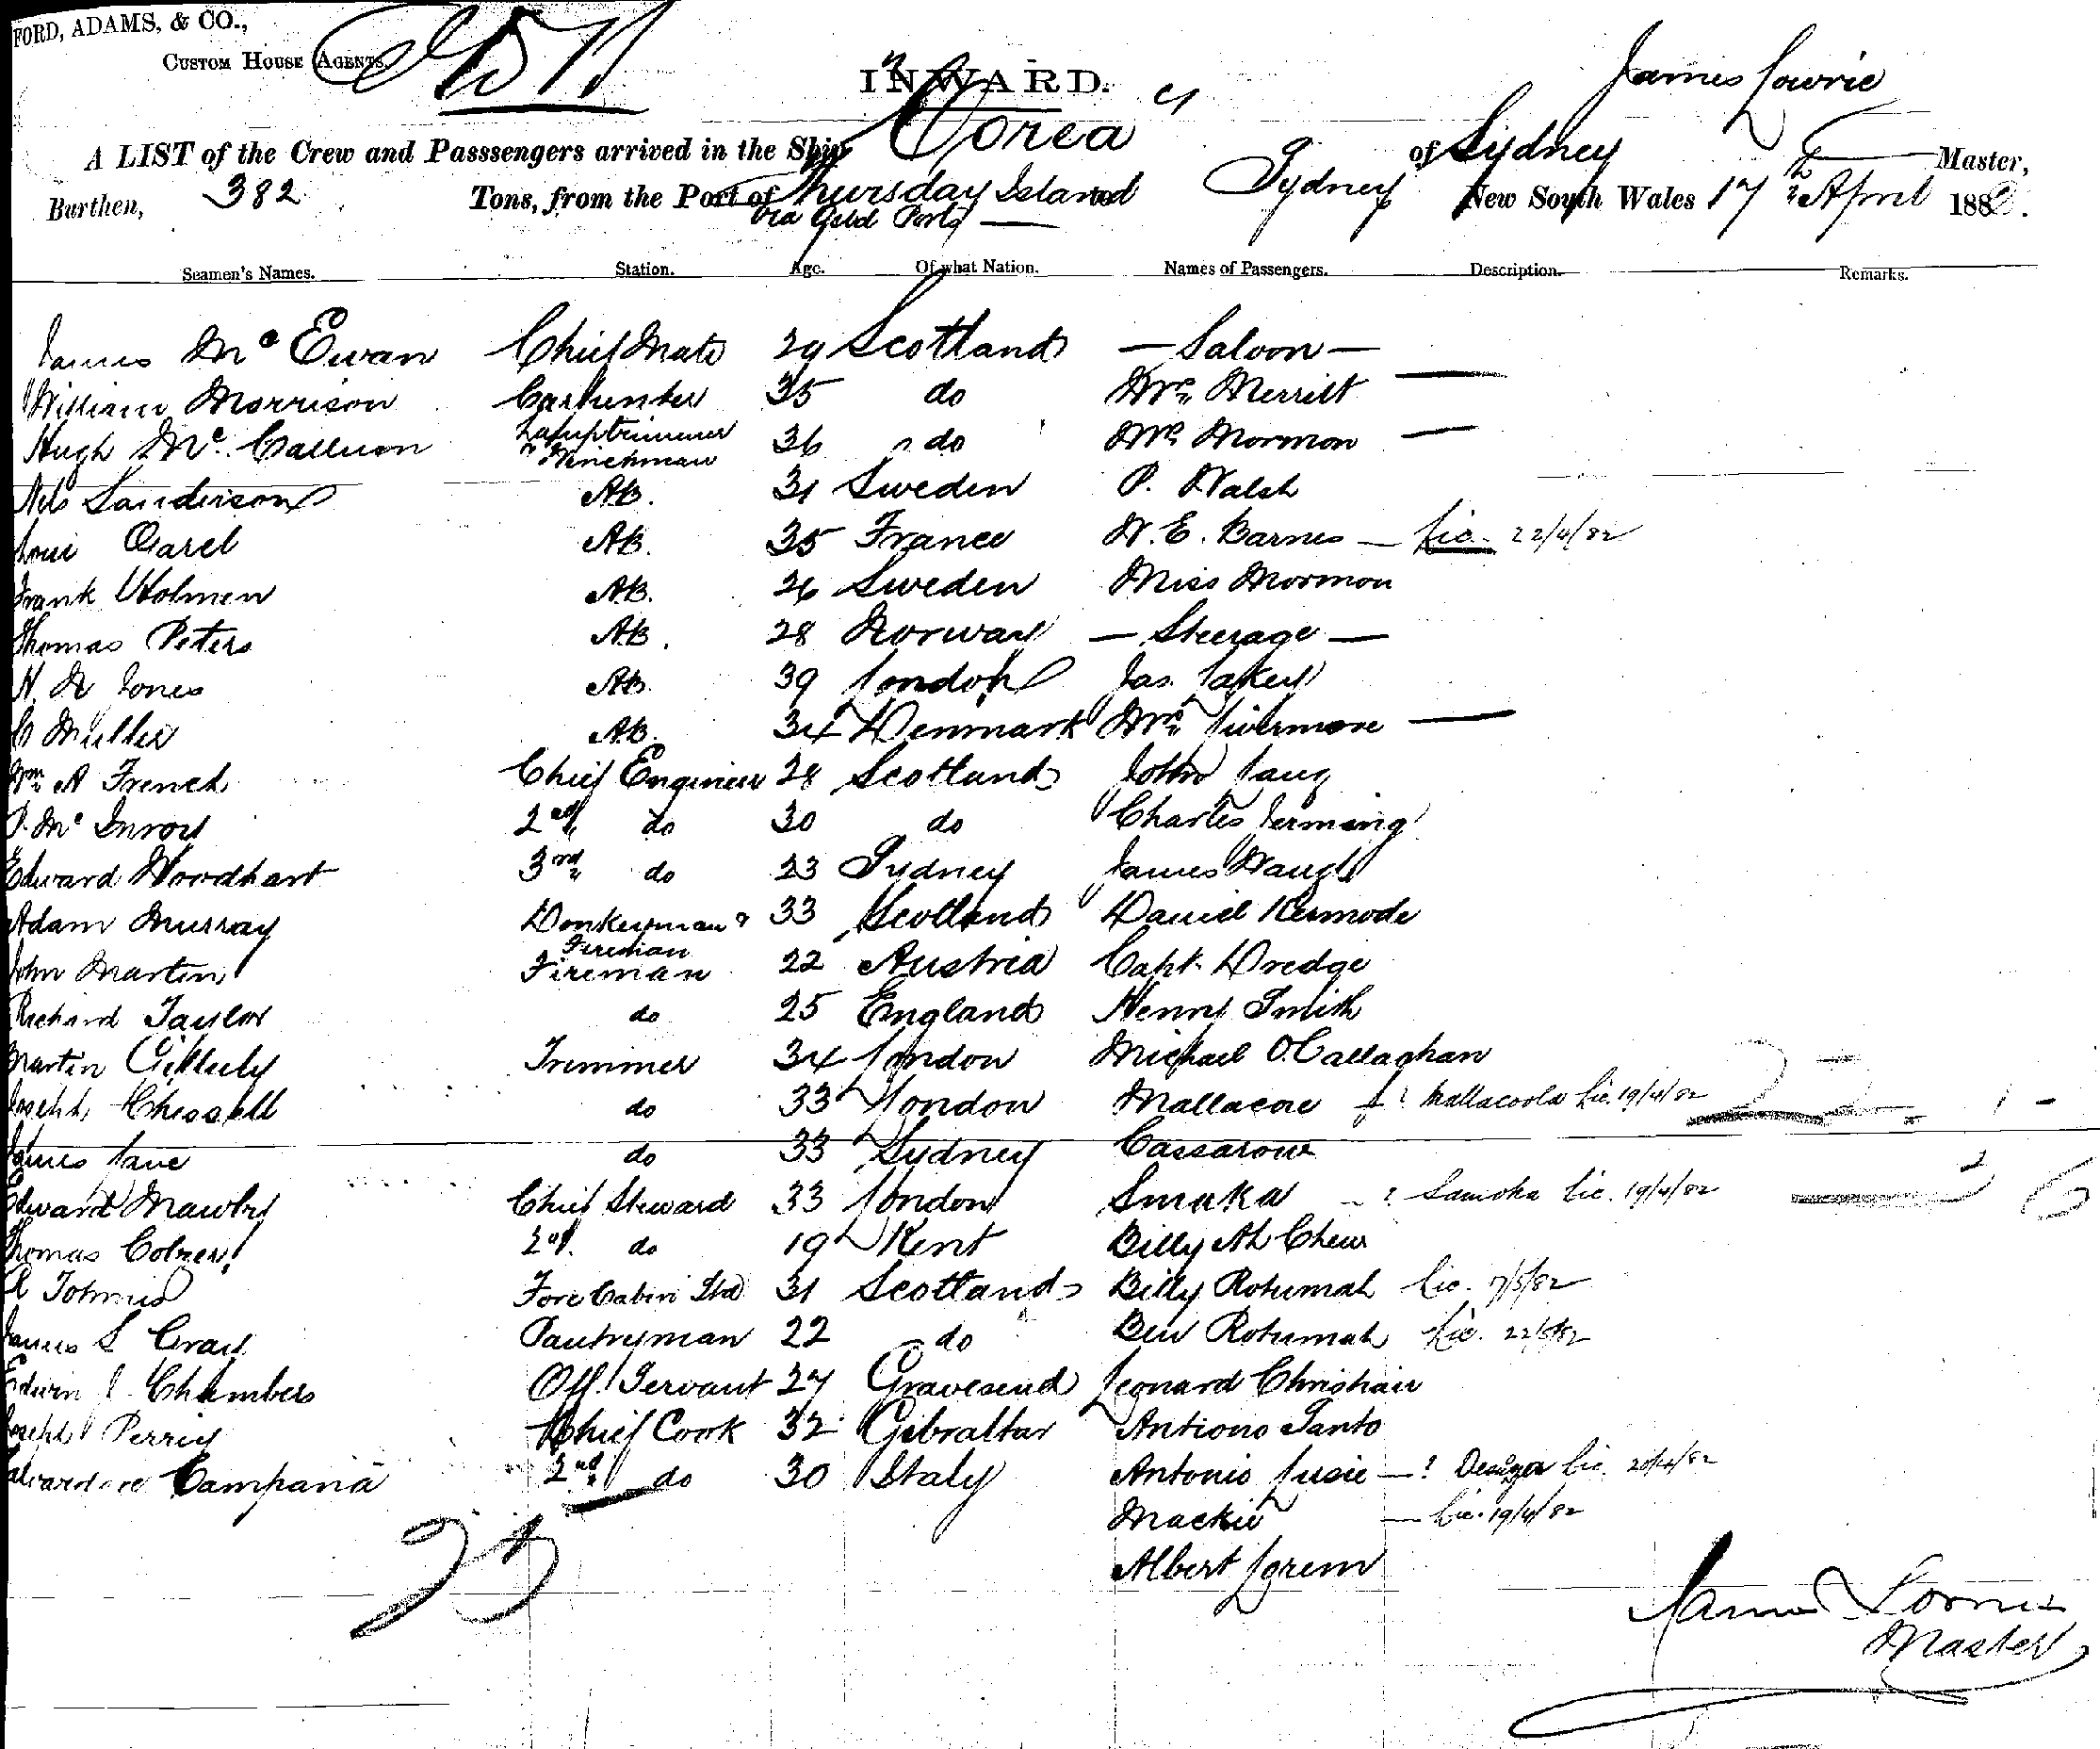 FORD, ADAMS, & CO.,
CUSTOM HOUSE AGENTS.
INWARD.
James Lowrie
A LIST of the Crew and Passsengers arrived in the Ship "Corea" of Sydney Master,
Burthen, 382 Tons, from the Port of Thursday Island Sydney New South Wales 17th April 188
via Qeld Ports
Seamen's Names. Station. Age. Of what Nation. Names of Passengers. Description. Remarks.
James Mc Ewan Chief Mate 29 Scotland — Saloon —
William Morrison Carpenter 35 do Mrs Merritt —
Hugh Mc Callum Lamptrimmer 36 do Mrs Mormon —
& Winchman
Nels Sanderson AB. 31 Sweden P. Walsh
Loui Garel AB. 35 France W. E. Barnes — Lic. 22/4/82
Frank Holmen AB. 26 Sweden Miss Mormon
Thomas Peters AB. 28 Norway — Steerage —
H. W Jones AB. 39 London Jas. Lakey
C Muller AB. 34 Denmark Mrs Livermore —
Wm A French Chief Engineer 28 Scotland John Lang
P. Mc Inroy 2nd do 30 do Charles
Edward Woodhart 3rd do 23 Sydney James Waugh
Adam Murray Donkeyman & 33 Scotland Daniel Kermode
Fireman
John Martin Fireman 22 Austria Capt. Dredge
Richard Taylor do 25 England Henry Smith
Martin Trimmer 34 London Michael O'Callaghan
Joseph Chessell do 33 London Mallacore ? Mallacoola Lic. 19/4/82
James Lane do 33 Sydney Cassarowe
Edward Mawbry Chief Steward 33 London Smaka — ? Samoka Lic. 19/4/82
Thomas 2nd. do 19 Kent Billy Ah Chew
R Fore Cabin Std 31 Scotland Billy Rotumah Lic. 17/5/82
James S Gray Pantryman 22 do Ben Rotumah Lic. 22/5/82
Edwin J. Chambers Off. Servant 27 Gravesend Leonard Christian
Joseph Perry Chief Cook 32 Gibraltar Antiono Santo
Campana 2nd do 30 Italy Antonio Lusie — ? Lic. 20/4/82
Mackie — Lic. 19/4/82
Albert Lorem
25
James Lowrie
Master